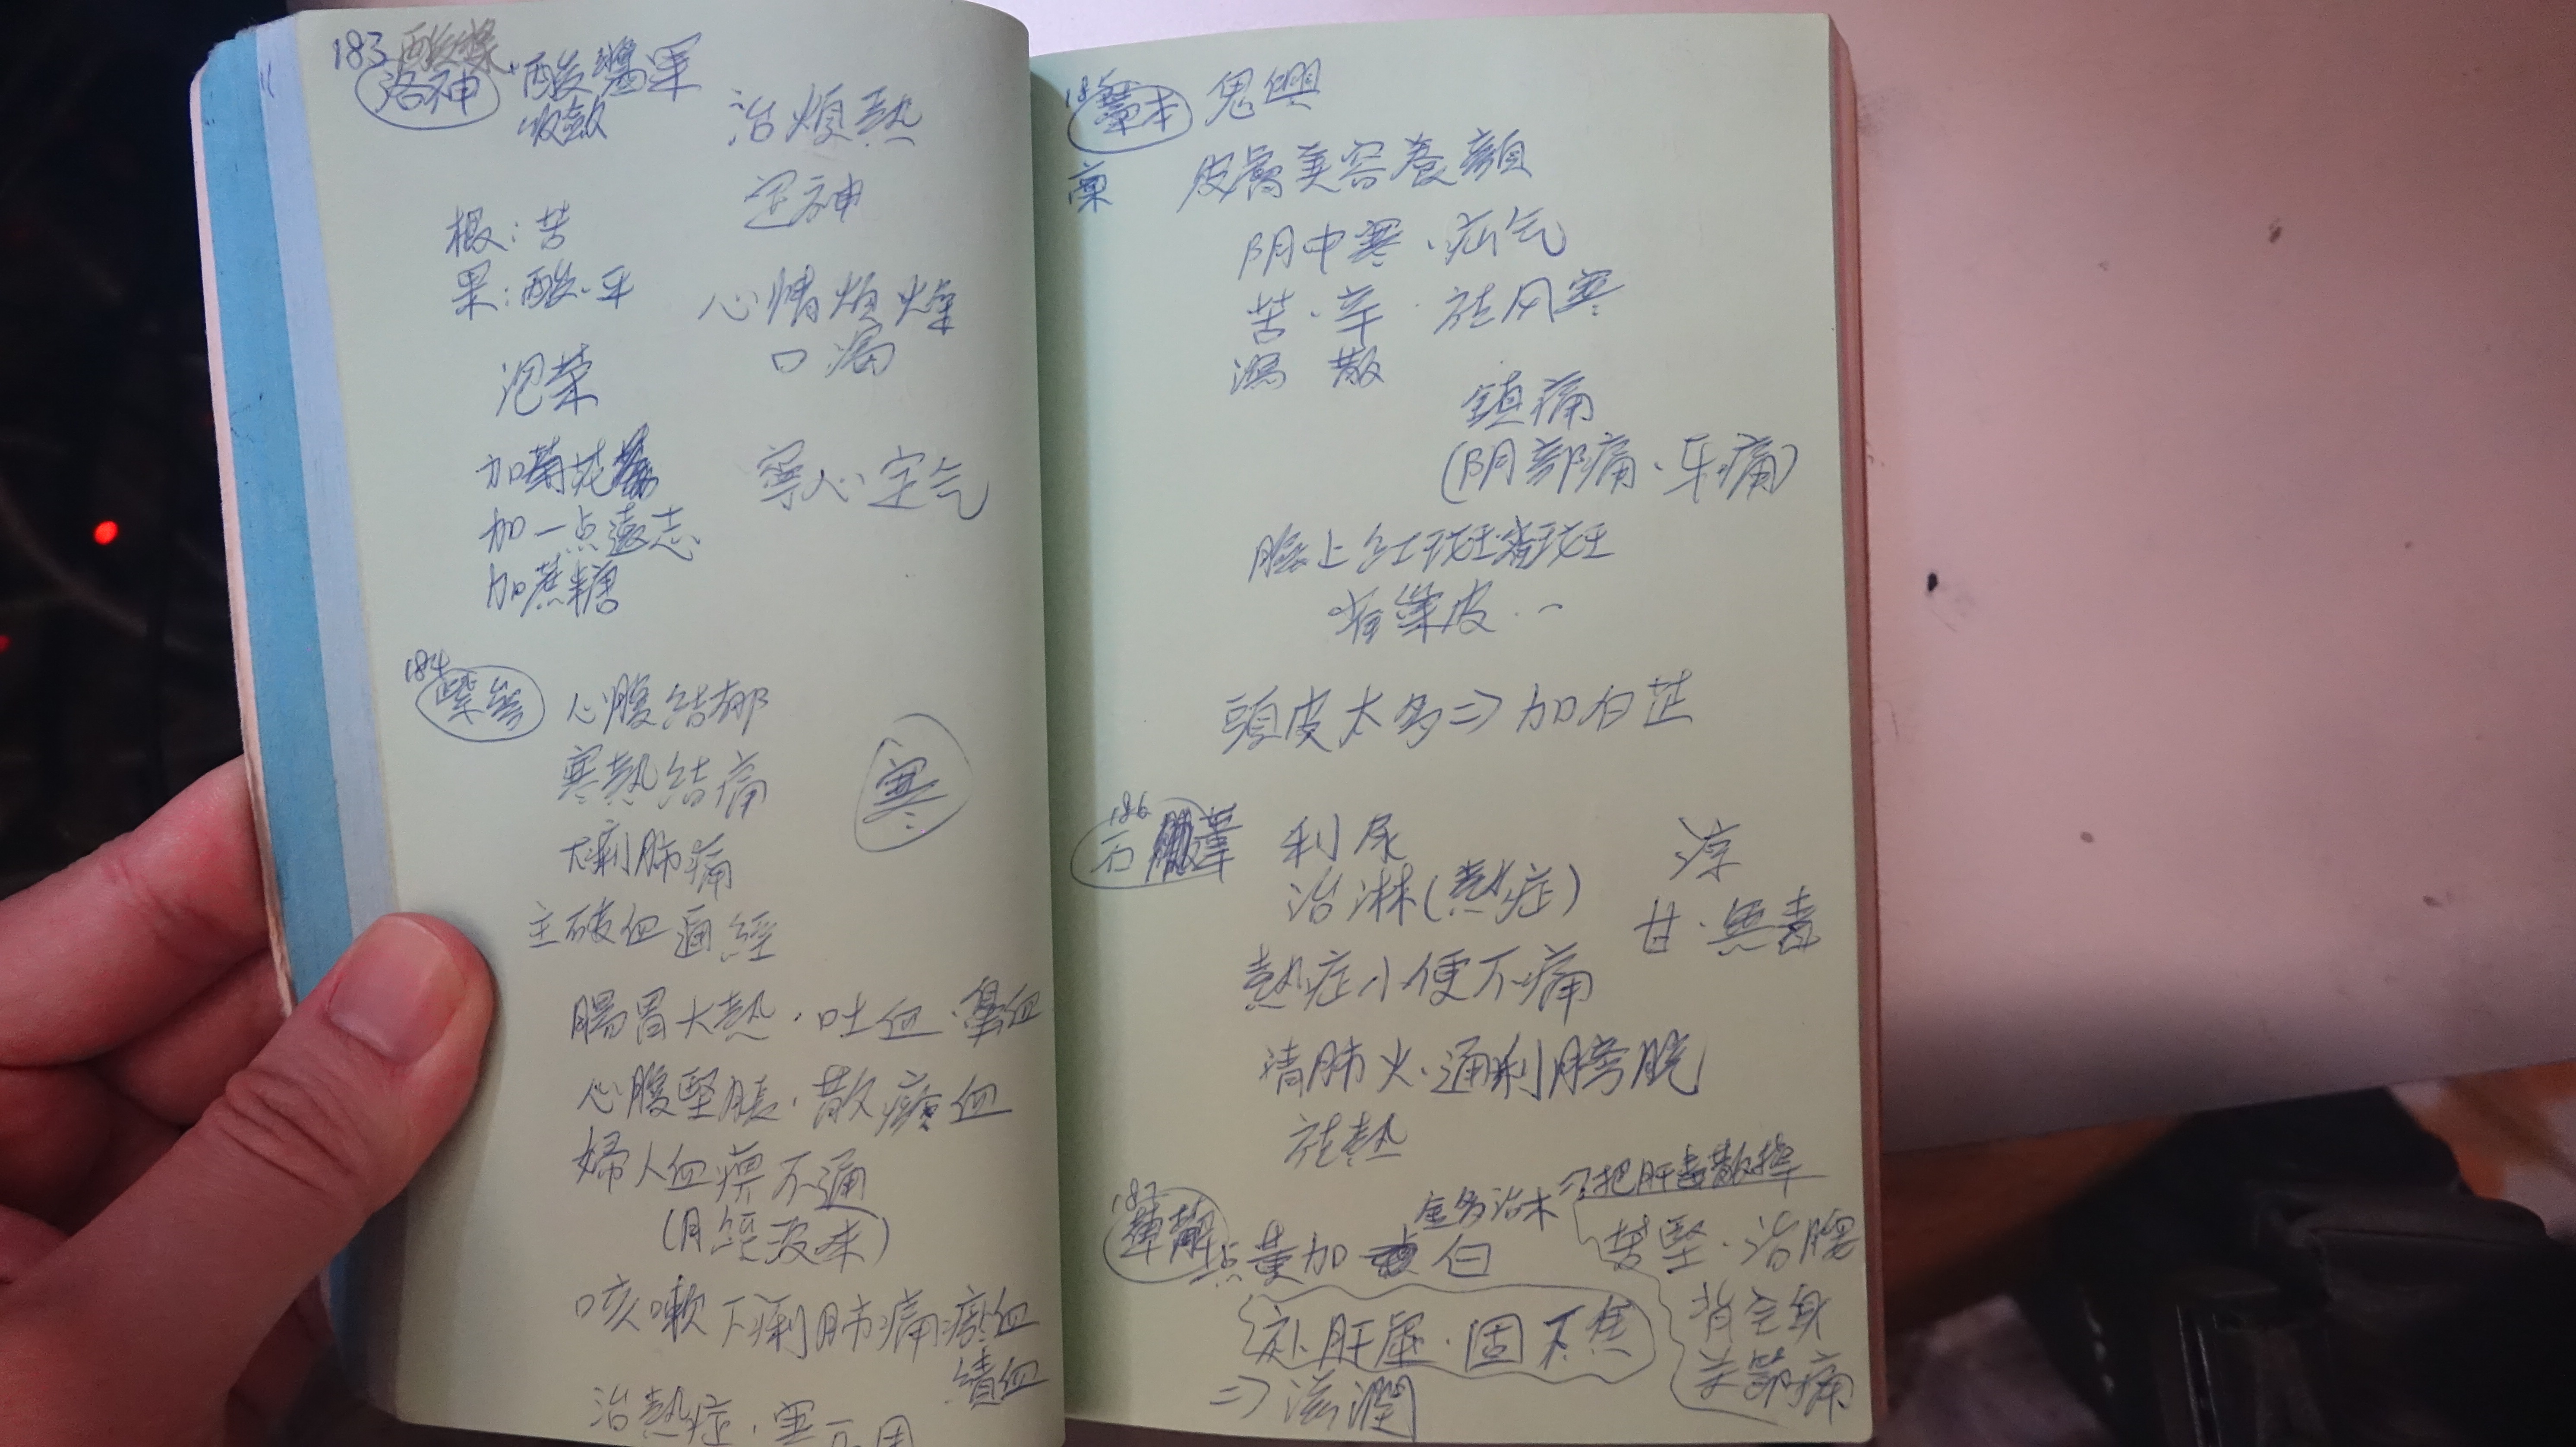 183 酸漿
洛神 酸漿果
收斂
治煩熱
定神
根:苦
果:酸.平
心情煩燥
口瘍
泡茶
加菊花
加一点遠志
加蔗糖
寧心定气
184
紫參 心腹結郁
寒熱結痛
寒
下痢肺痛
主破血通經
腸胃大熱.吐血.鼻血
心腹堅脹.散瘀血
婦人血痹不通
(月經沒來)
咳嗽下痢肺痛瘀血
積血
治熱症.寒不用
185
藁本 鬼卿
藁 皮膚美容養顏
阴中寒.疝气
苦.辛.祛风寒
瀉 散
鎮痛
(阴部痛.牙痛)
臉上红斑
皮
頭皮太多=>加白芷
186
石葦 利尿
治淋(熱症)
涼
甘.無毒
熱症小便不痛
清肺火.通利膀胱
祛熱
187
萆薢 点黃加白
金多治木=>把肝毒散掉
苦堅.治腰
背全身
关節痛
补肝虛.固下焦
=>滋潤